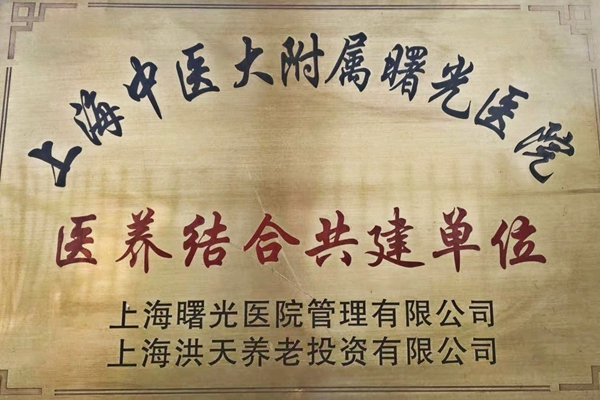 上海中医大附属曙光医院
医养结合共建单位
上海曙光医院管理有限公司
上海洪天养老投资有限公司